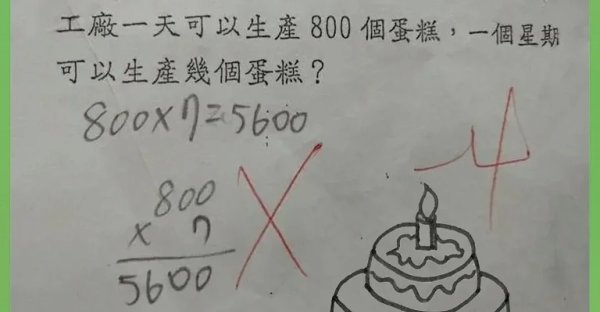 工廠一天可以生產 800 個蛋糕，一個星期
可以生產幾個蛋糕？
800×7=5600
800
× 7
5600
-4